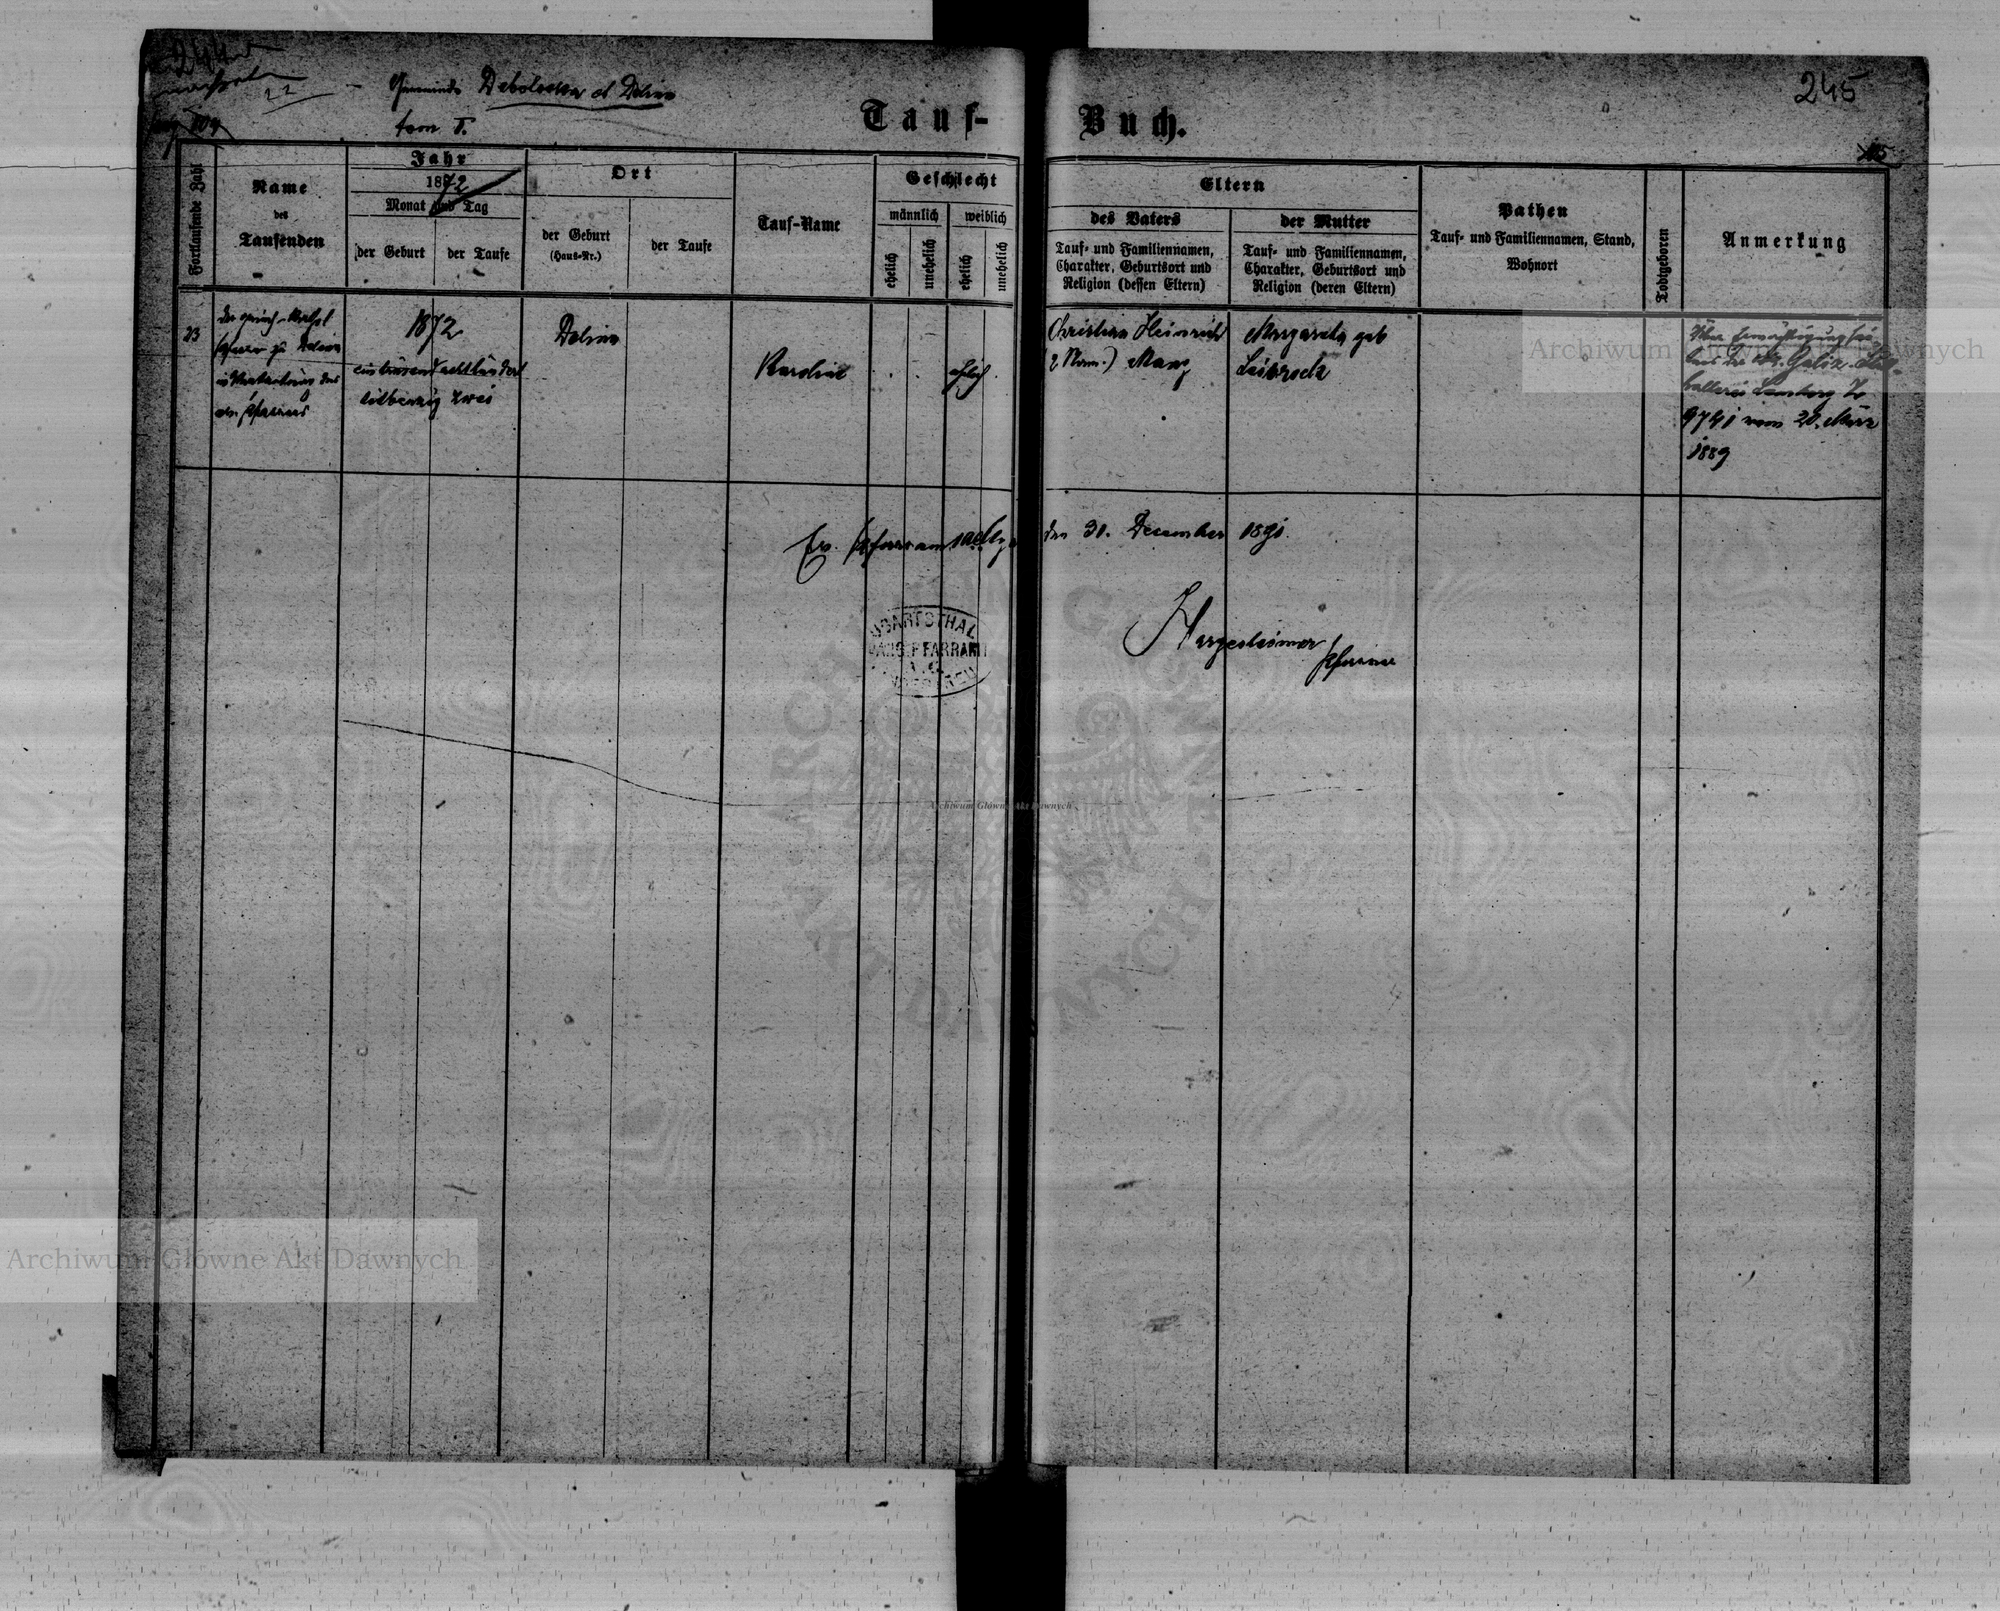 245
Gemeinde Debolowka et Dolina
tom I.
Tauf-Buch.
Fortlaufende Zahl
Name
des
Taufenden
Jahr
1872
Monat und Tag
der Geburt
der Taufe
Ort
der Geburt
(Haus-Nr.)
der Taufe
Tauf-Name
Geschlecht
männlich
weiblich
ehelich
unehelich
ehelich
unehelich
Eltern
des Vaters
Tauf- und Familiennamen,
Charakter, Geburtsort und
Religion (dessen Eltern)
der Mutter
Tauf- und Familiennamen,
Charakter, Geburtsort und
Religion (deren Eltern)
Pathen
Tauf- und Familiennamen, Stand,
Wohnort
Todtgeboren
Anmerkung
23
Pfarrer zu Dolina
in Vertretung des
ev. Pfarrers
1872
eintausend achthundert
siebenzig zwei
Dolina
Karoline
ehelich
Christian Heinrich
(2 Nam.) Mang
Margareta geb
Leibrock
9741 vom 20. März
1889
Ev. Pfarramt
den 30. December 1891.
Hargesheimer
Pfarrer
UGARTSTHAL
EVANG. PFARRAMT
A. C.
Archiwum Główne Akt Dawnych
Archiwum Główne Akt Dawnych
Archiwum Główne Akt Dawnych
ARCHIWUM GŁÓWNE AKT DAWNYCH